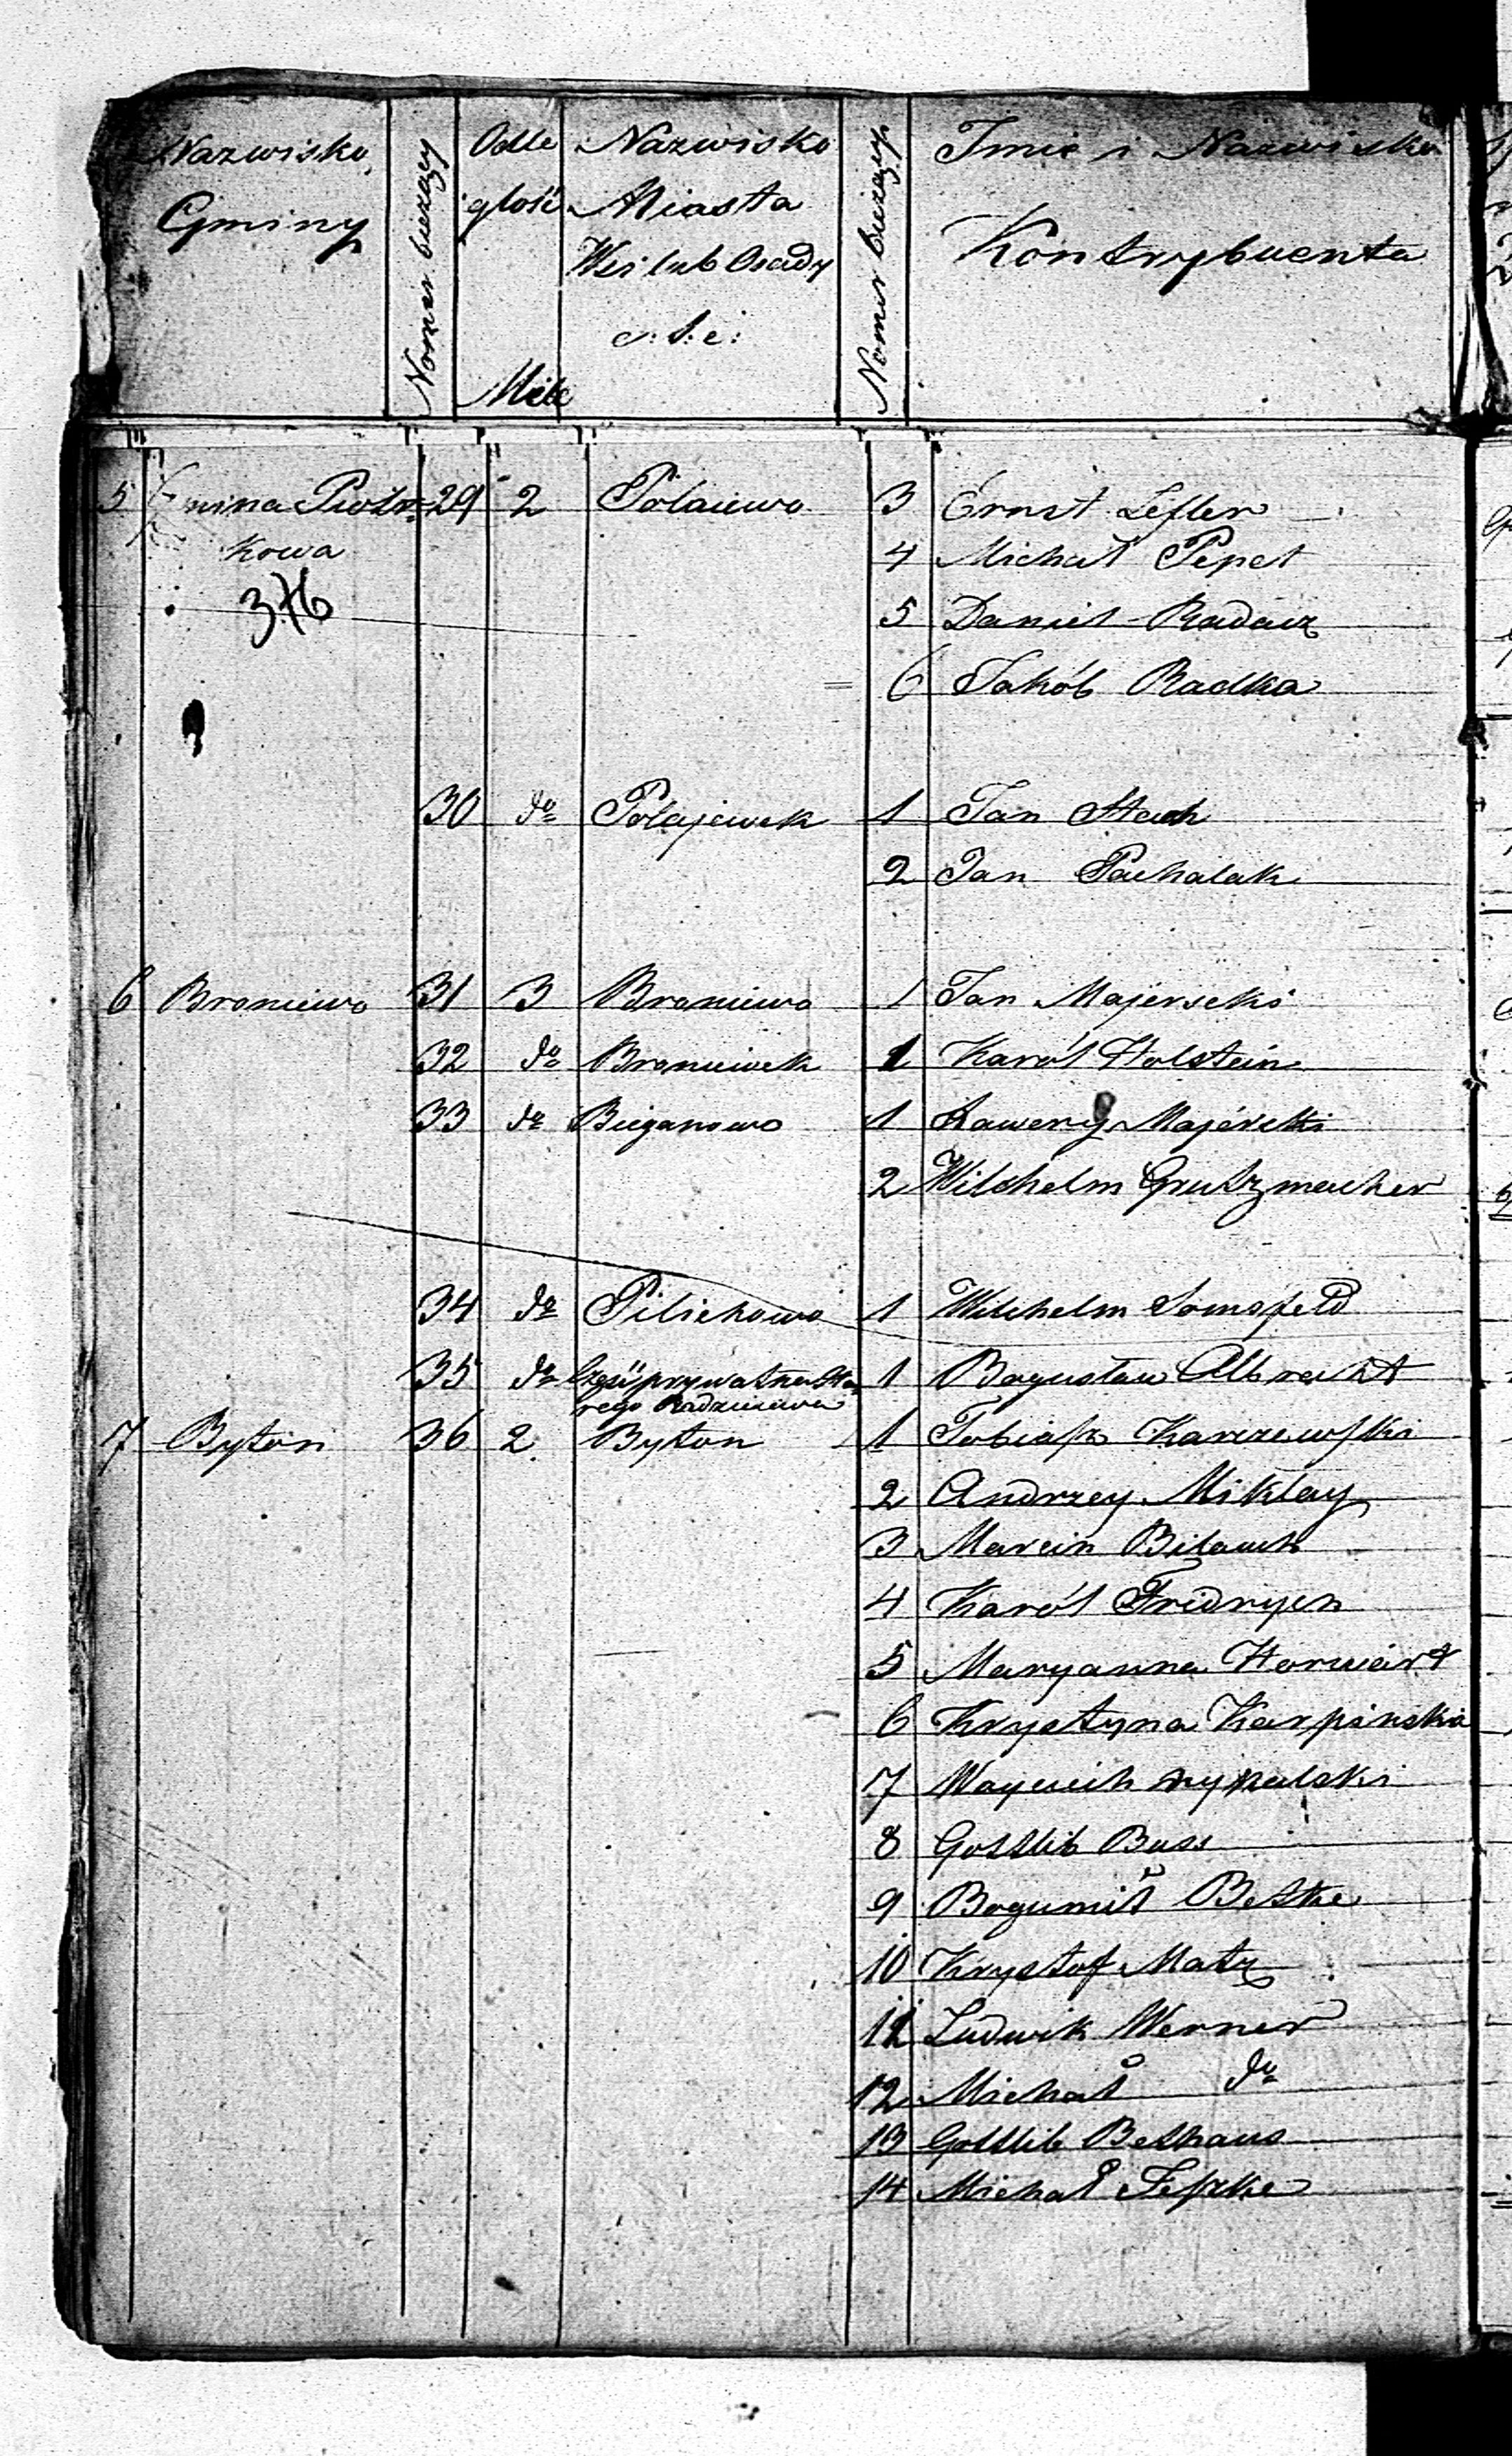 Nazwisko Gminy
Nomer bieżący
Odległość Mile
Nazwisko Miasta Wsi lub Osady
Nomer bieżący
Imie i Nazwisko Kontrybuenta
5 Gmina Piotr= 29 2 Połaiewo 3 Ernst Lefler
kowa 4 Michał Pepet
376 5 Daniel Radacz
6 Jakób Radka
30 do Połajewek 1 Jan Stach
2 Jan Pachalak
6 Broniewo 31 3 Broniewo 1 Jan Majerski
32 do Broniewek 1 Karól Holstein
33 do Bieganowo 1 Xawery Majerski
2 Wilchelm Grutzmacher
34 do Pilichowo 1 Wilchelm Somofeld
35 do Część prywatna Sta 1 Bogusław Albracht
rego Radziejewa
7 Bytoń 36 2 Byton 1 Tobiasz Karczewski
2 Andrzey Miklay
3 Marcin
4 Karól Fridrych
5 Maryanna
6 Krystyna Karpinska
7 Woyciech
8 Gottlib Buss
9 Bogumił Betke
10 Krystof Matz
11 Ludwik Werner
12 Michał do
13 Gottlib Bethaus
14 Michał